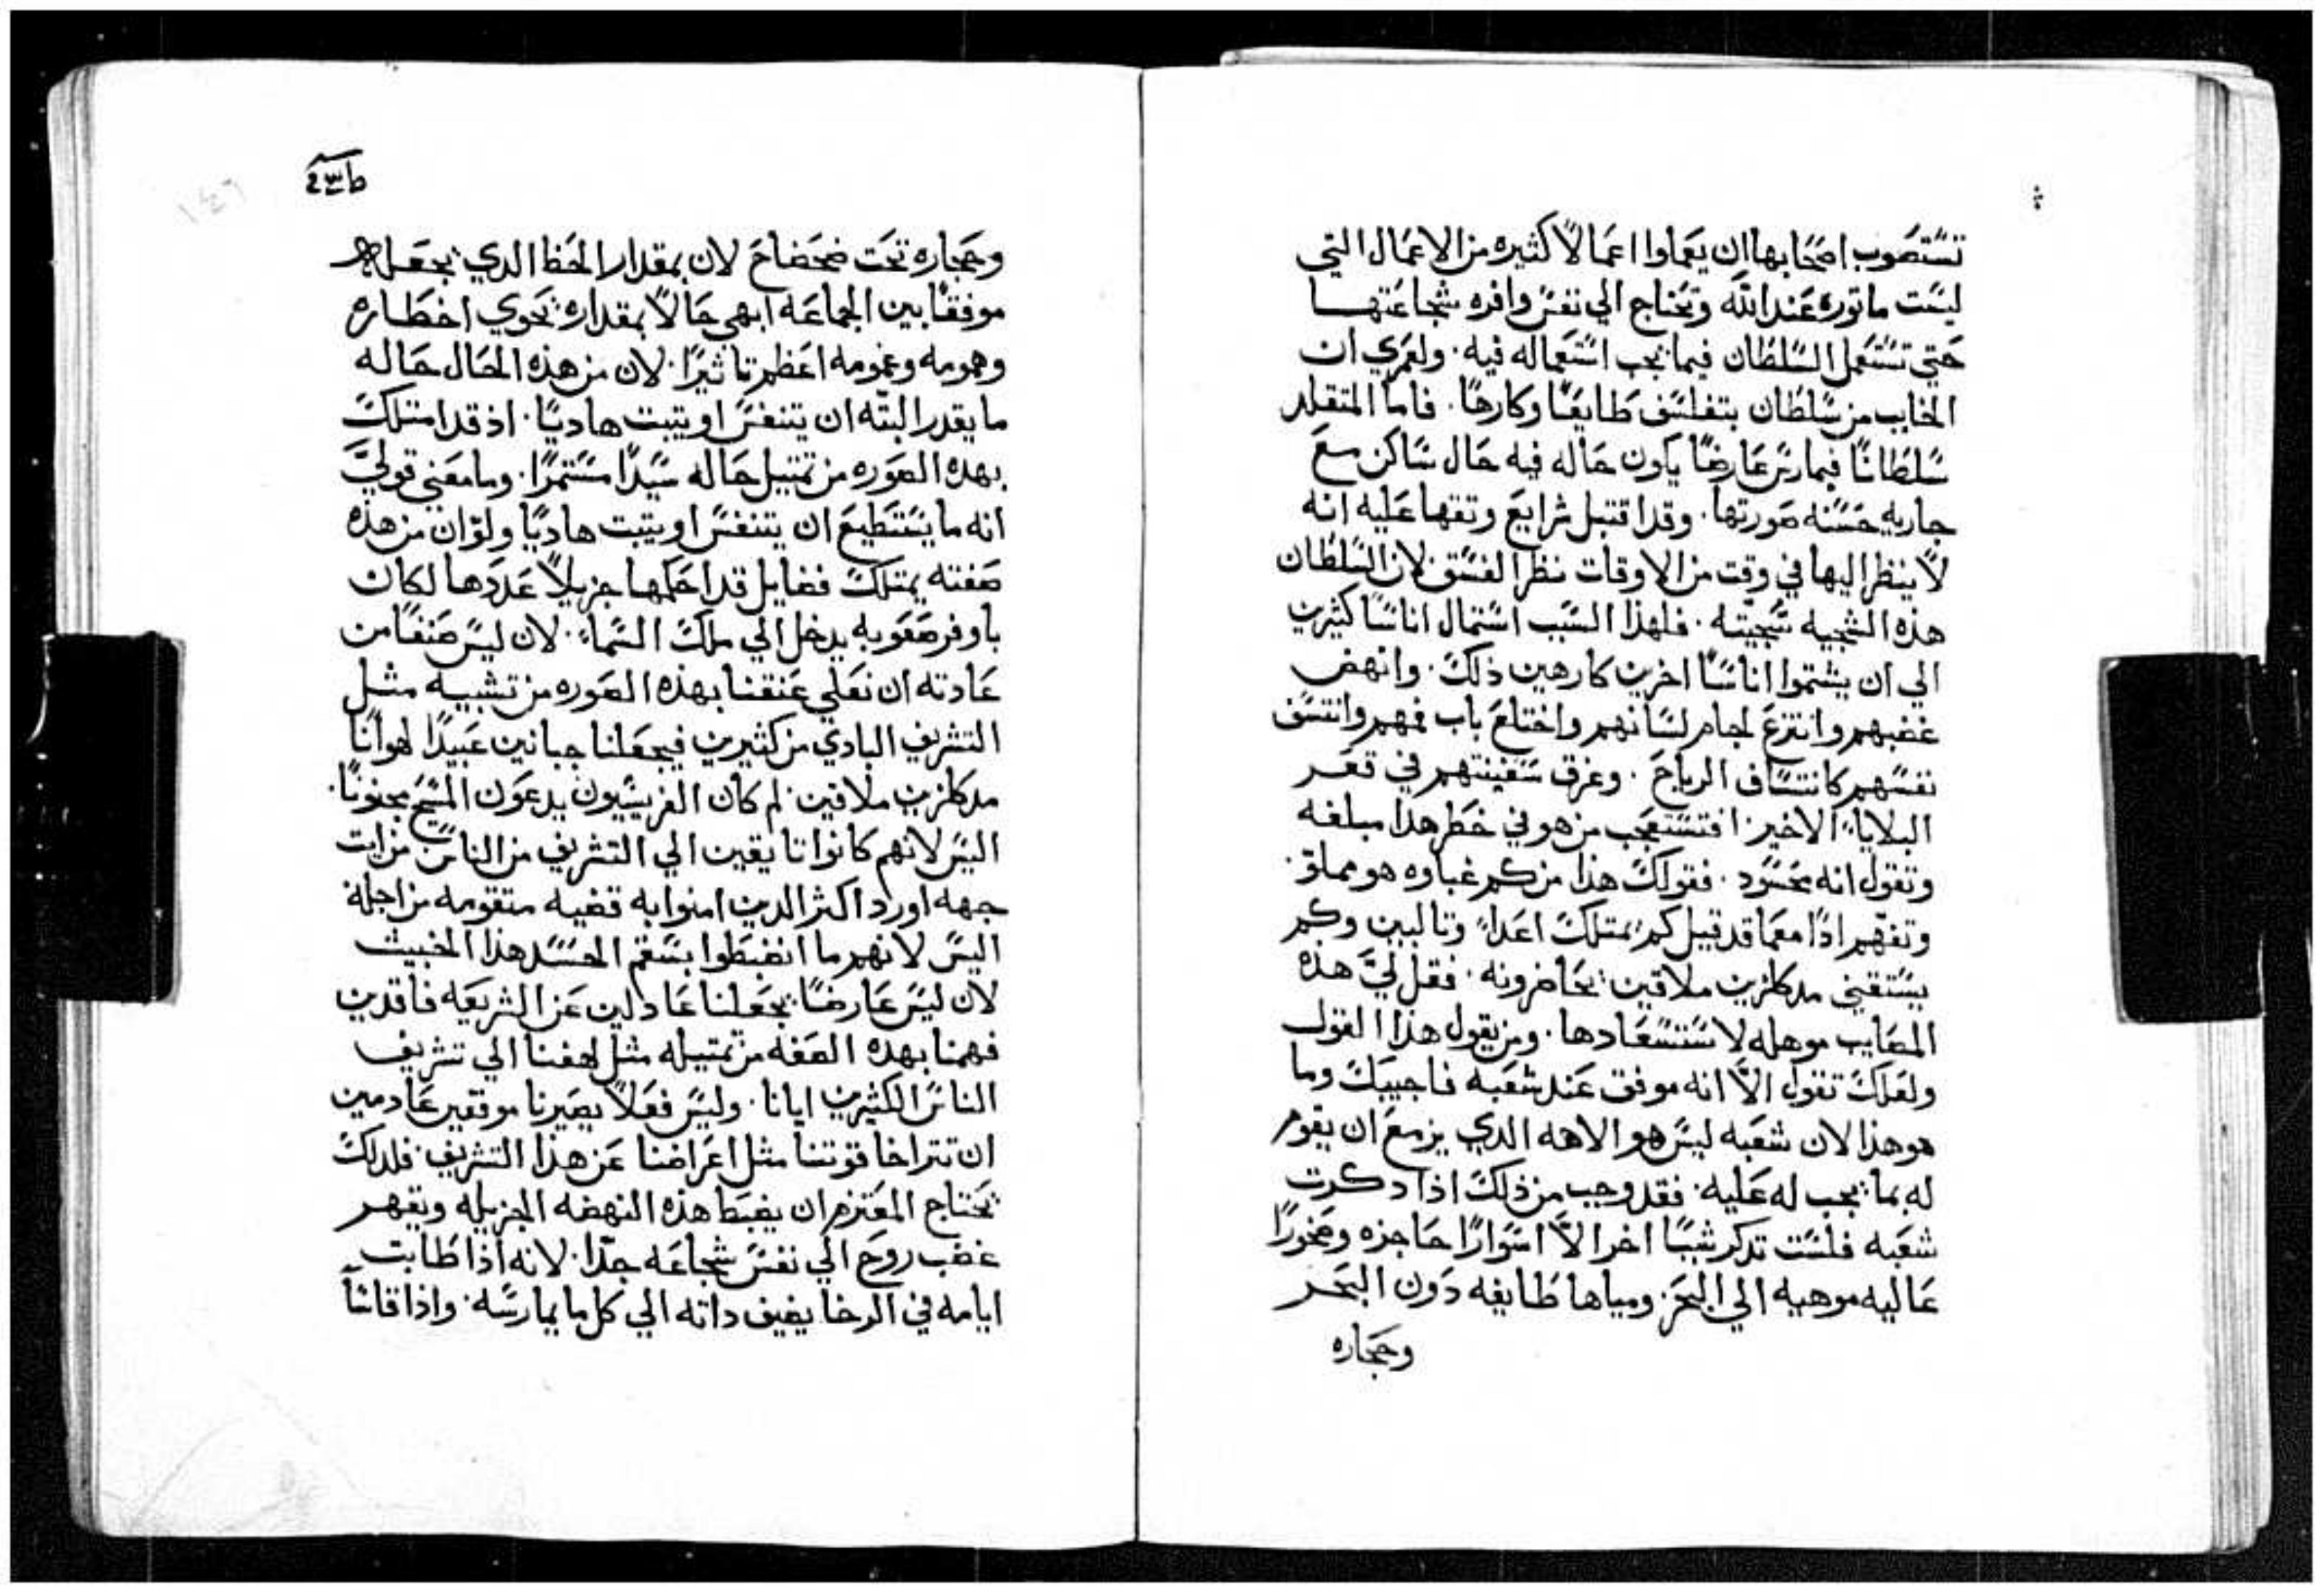 تستصوب اصحابها ان يعملوا اعمالاً كثيره من الاعمال التي
ليست ماتوره عند الله وتحتاج الي نفس وافره شجاعتها
حتي تستعمل السلطان فيما يجب استعماله فيه. ولعمري ان
الخايب من سلطان يتفلسف طايعًا وكارهًا. فاما المتقلد
سلطانًا فيمارس عارضًا يكون حاله فيه حال ساكن مع
جاريه حسنه صورتها. وقد اقتبل شرايع وتقها عليه انه
لا ينظر اليها في وقت من الاوقات نظر الفسق لان السلطان
هذه السجيه سجيته. فلهذا السبب استمال اناسًا كثيرين
الي ان يشتموا اناسًا اخرين كارهين ذلك. وانهض
غضبهم وانتزع لجام لسانهم واختلع باب فمهم وانتسف
نفسهم كانتساف الرياح. وغرق سفينتهم في قعر
البلايا الاخير. افتستعجب من هو في خطر هذا مبلغه
وتقول انه محسود. فقولك هذا من كم غباوه هو مملوّ.
وتفهم اذًا معما قد قيل كم يمتلك اعداءً وتالبين وكم
يستقني مدكلزين ملاقين يحاضرونه. فقل ليَّ هذه
المصايب موهله لاستسعادها. ومن يقول هذا القول
ولعلك تقول الاَّ انه موفق عند شعبه فاجيبك وما
هو هذا لان شعبه ليس هو الاهه الدي يزمع ان يقوم
له بما يجب له عليه. فقد وجب من ذلك اذا دكرت
شعبه فلست تدكر شيبًا اخر الاَّ اسوارًا حاجزه وصخورًا
عاليه موهيه الي البحر. ومياها طايفه دون البحر
وحجاره
وحجاره تحت ضحضاح لان بمقدار الحظ الدي يجعله
موفقًا بين الجماعه ابهي حالاً بمقداره يحوي اخطاره
وهمومه وغمومه اعظم تاثيرًا. لان من هذه الحال حاله
ما يقدر البتّه ان يتنفس او يتبت هاديًا. اذ قد امتلك
بهده الصوره من تمتيل حاله سيدًا مستمرًا. وما معني قوليَّ
انه ما يستطيع ان يتنفس او يتبت هاديًا ولو ان من هذه
صفته يمتلك فضايل قد احكمها جزيلاً عددها لكان
باوفر صعوبه يدخل الي ملك السماء. لان ليس صنفًا من
عادته ان نعلي عنقنا بهذه الصوره من تشبيه مثل
التشريف البادي من كثيرين فيجعلنا جبانين عبيدًا لهوانًا
مدكلزين ملاقين. لم كان الفريسيون يدعون المسيح مجنونًا.
اليس لانهم كانوا تايقين الي التشريف من الناس من ايت
جهه اورد اكثر الدين امنوا به قضيه متقومه من اجله
اليس لانهم ما انضبطوا بسقم الحسد هذا الخبيث
لان ليس عارضًا يجعلنا عادلين عن الشريعه فاقدين
فهمنا بهده الصفه من تمتيله مثل لهفنا الي تشريف
الناس الكثيرين ايانا. وليس فعلاً يصيرنا موفقين عادمين
ان تتراخا قوتنا مثل اعراضنا عن هذا التشريف. فلدلك
يحتاج المعتزم ان يضبط هذه النهضه الجزيله ويقهر
غضب روح الي نفس شجاعه جدًا. لانه اذا طابت
ايامه في الرخا يضيف داته الي كل ما يمارسه. واذا قاسًا